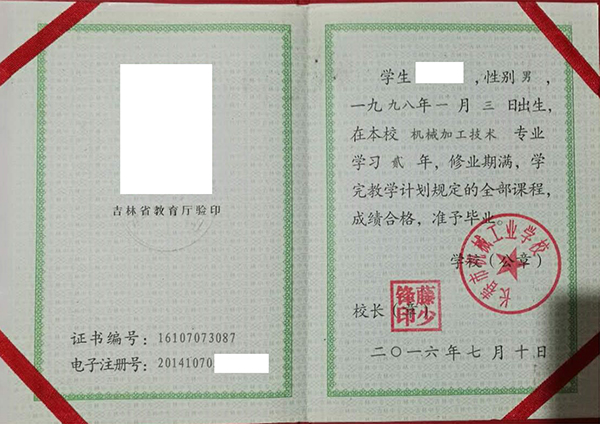 吉林省教育厅验印
证书编号：16107073087
电子注册号：20141070
学生 ，性别 男 ，
一九 九八年 一 月 三 日出生，
在本校 机械加工技术 专业
学习 贰 年，修业期满，学
完教学计划规定的全部课程，
成绩合格，准予毕业。
学校（公章）
长春市机械工业学校
校长（章）
滕少锋印
二〇一六年七月十日